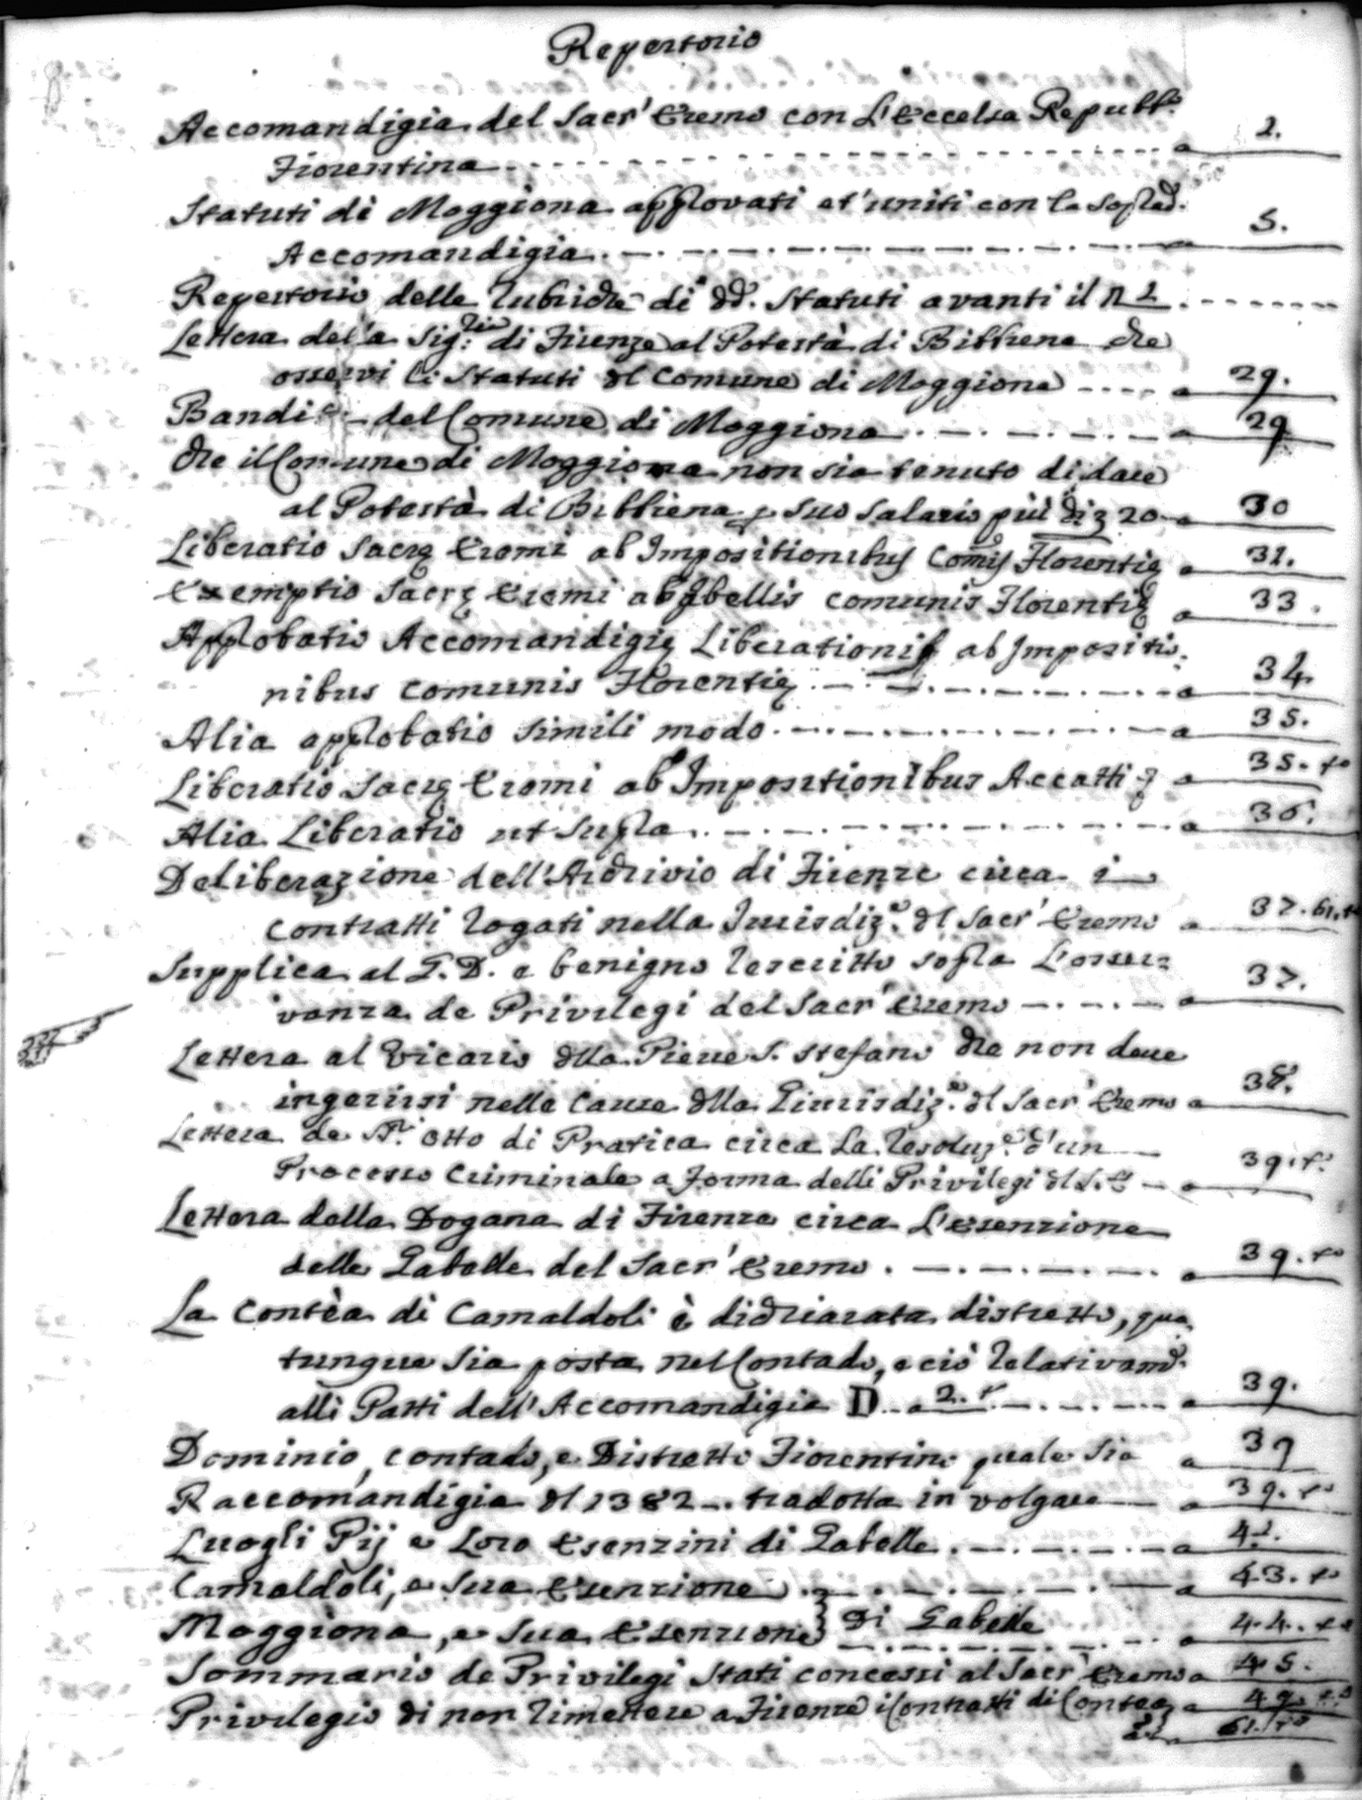 Repertorio
Accomandigia del Sacr' Eremo con L'Eccelsa Repubb.
Fiorentina - - - a 2.
Statuti di Moggiona approvati et' uniti con la soprad.
Accomandigia - - - a 5.
Repertorio delle rubriche di dd. Statuti avanti il n 2 - - -
Lettera della Sig.ria di Firenze al Potestà di Bibbiena che
osservi li Statuti del Comune di Moggiona - - - a 29.
Bandi - del Comune di Moggiona - - - a 29
Che il Comune di Moggiona non sia tenuto di dare
al Potestà di Bibbiena p suo salario più di 20 - a 30
Liberatio Sacrę Eremi ab Impositionibus Comis Florentię a 31.
Exemptio Sacrę Eremi ab gabellis comunis Florentię a 33.
Approbatio Accomandigię Liberationis ab Impositio-
nibus comunis Florentię - - - a 34
Alia approbatio simili modo - - - a 35.
Liberatio Sacrę Eremi ab Impositionibus Accatti a 35. to
Alia Liberatio ut supra - - - a 36.
Deliberazione dell'Archivio di Firenze circa i
contratti rogati nella Jurisdiz.e del Sacr' Eremo a 37. 61. to
Supplica al G. D. e benigno rescritto sopra L'osser-
vanza de Privilegi del Sacr' Eremo - - - a 37.
Lettera al Vicario della Pieve S. Stefano che non deve
ingerirsi nelle Cause della Giurisdiz.e del Sacr' Eremo a 38.
Lettera de SS.ri Otto di Pratica circa La resoluz.e d'un
Processo Criminale a forma delli Privilegi del S. E - a 39. t.
Lettera della Dogana di Firenze circa L'esenzione
delle Gabelle del Sacr' Eremo - - - a 39. to
La Contèa di Camaldoli è dichiarata distretto, qua
tunque sia posta nel Contado, e ciò relativam.
alli Patti dell'Accomandigia D. a 2. t - - - a 39.
Dominio, contado, e Distretto Fiorentino quale sia a 39
Raccomandigia del 1382 - tradotta in volgare a 39. to
Luoghi Pij e Loro Esenzini di Gabelle - - - a 42.
Camaldoli, e sua Esenzione - - - a 43. to
Moggiona, e sua Esenzione } di Gabelle - - - a 44. to
Sommario de Privilegi stati concessi al Sacr' Eremo a 45.
Privilegio di non rimettere a Firenze i Contratti di Contea a 49. to
61. to